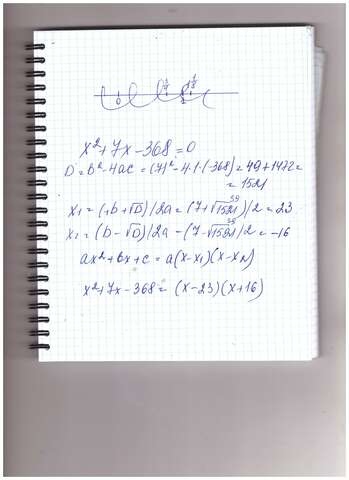 0 2
x²+7x-368=0
D=b²-4ac=(7)²-4·1·(-368)=49+1472=
=1521
39
x₁=(+b+√D)/2a=(7+√1521)/2=23
39
x₂=(b-√D)/2a-(7-√1521)/2=-16
ax²+bx+c=a(x-x₁)(x-x₂)
x²+7x-368=(x-23)(x+16)